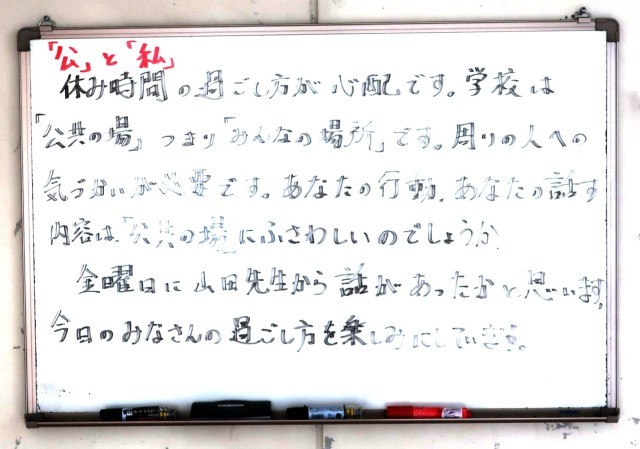 「公」と「私」
休み時間の過ごし方が心配です。学校は
「公共の場」つまり「みんなの場所」です。周りの人への
気づかいが必要です。あなたの行動、あなたの話す
内容は「公共の場」にふさわしいのでしょうか。
金曜日に山田先生から話があったかと思います。
今日のみなさんの過ごし方を楽しみにしています。